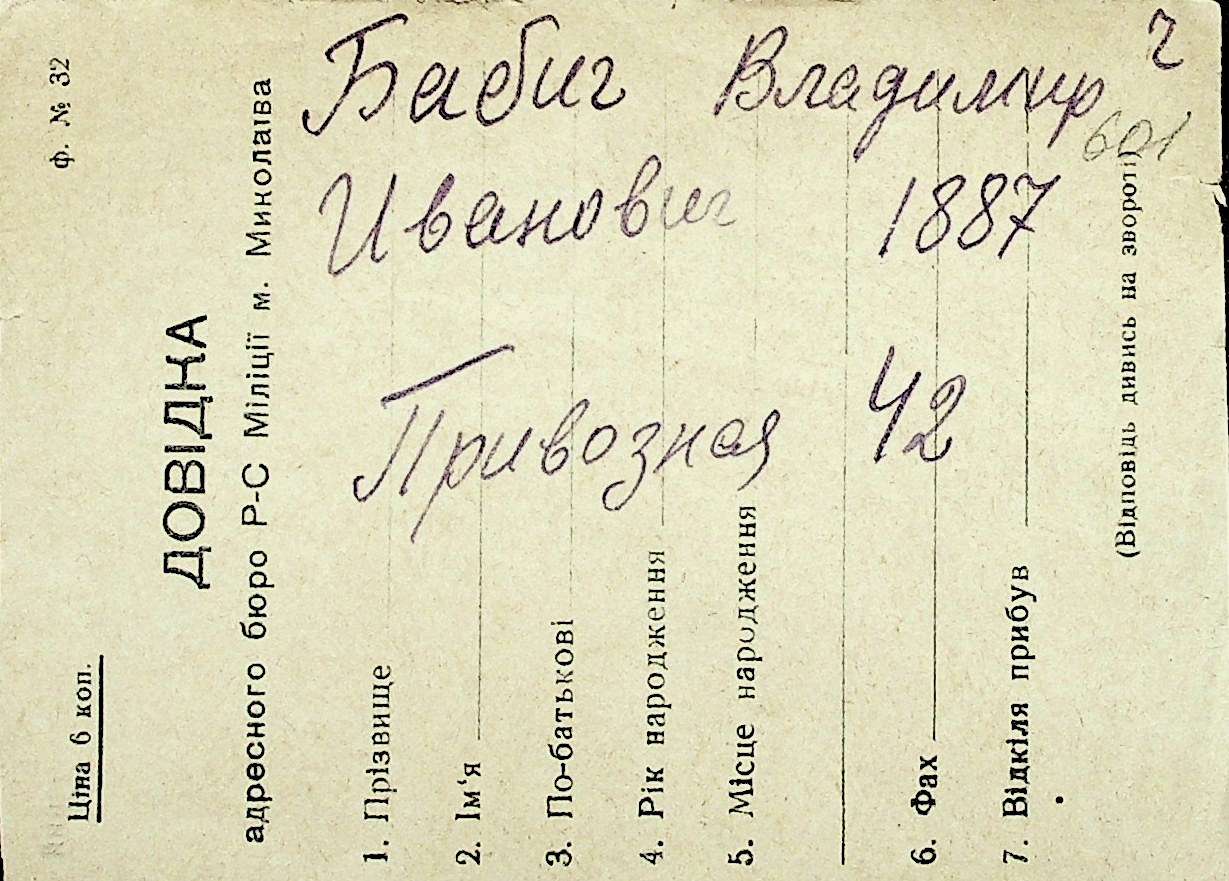 ф. № 32
Ціна 6 коп.
ДОВІДКА
адресного бюро Р-С Міліції м. Миколаїва
1. Прізвище
2. Ім‘я
3. По-батькові
4. Рік народження
5. Місце народження
6. Фах
7. Відкіля прибув
(Відповідь дивись на звороті)
Бабич Владимир
Иванович 1887
Привозная 42
601